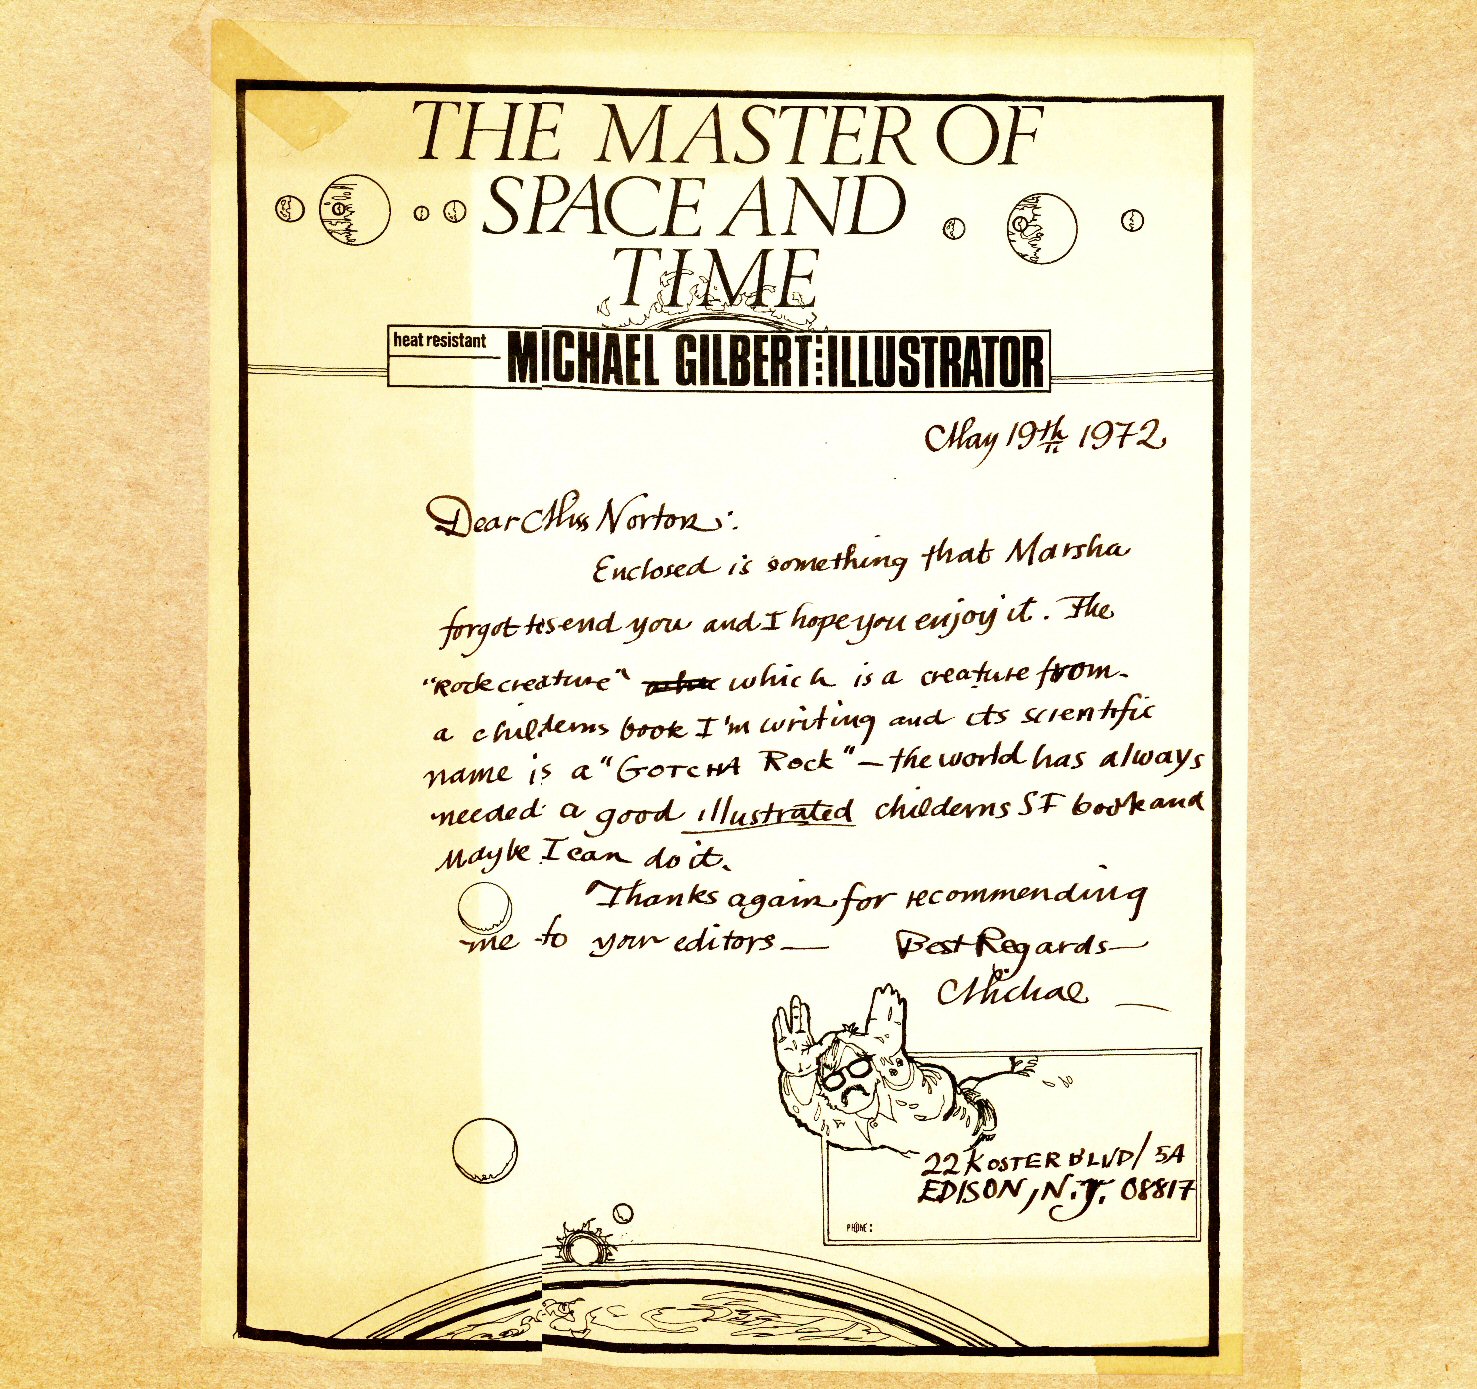 THE MASTER OF
SPACE AND
TIME
heat resistant
MICHAEL GILBERT ILLUSTRATOR
May 19th 1972
Dear Miss Norton:
Enclosed is something that Marsha
forgot to send you and I hope you enjoy it. The
"Rock creature" which is a creature from
a childerns book I'm writing and its scientific
name is a "GOTCHA Rock" — the world has always
needed a good illustrated childerns SF book and
Maybe I can do it.
Thanks again for recommending
me to your editors — Best Regards —
Michael
22 KOSTER BLVD/ 5A
EDISON, N.J. 08817
PHONE: